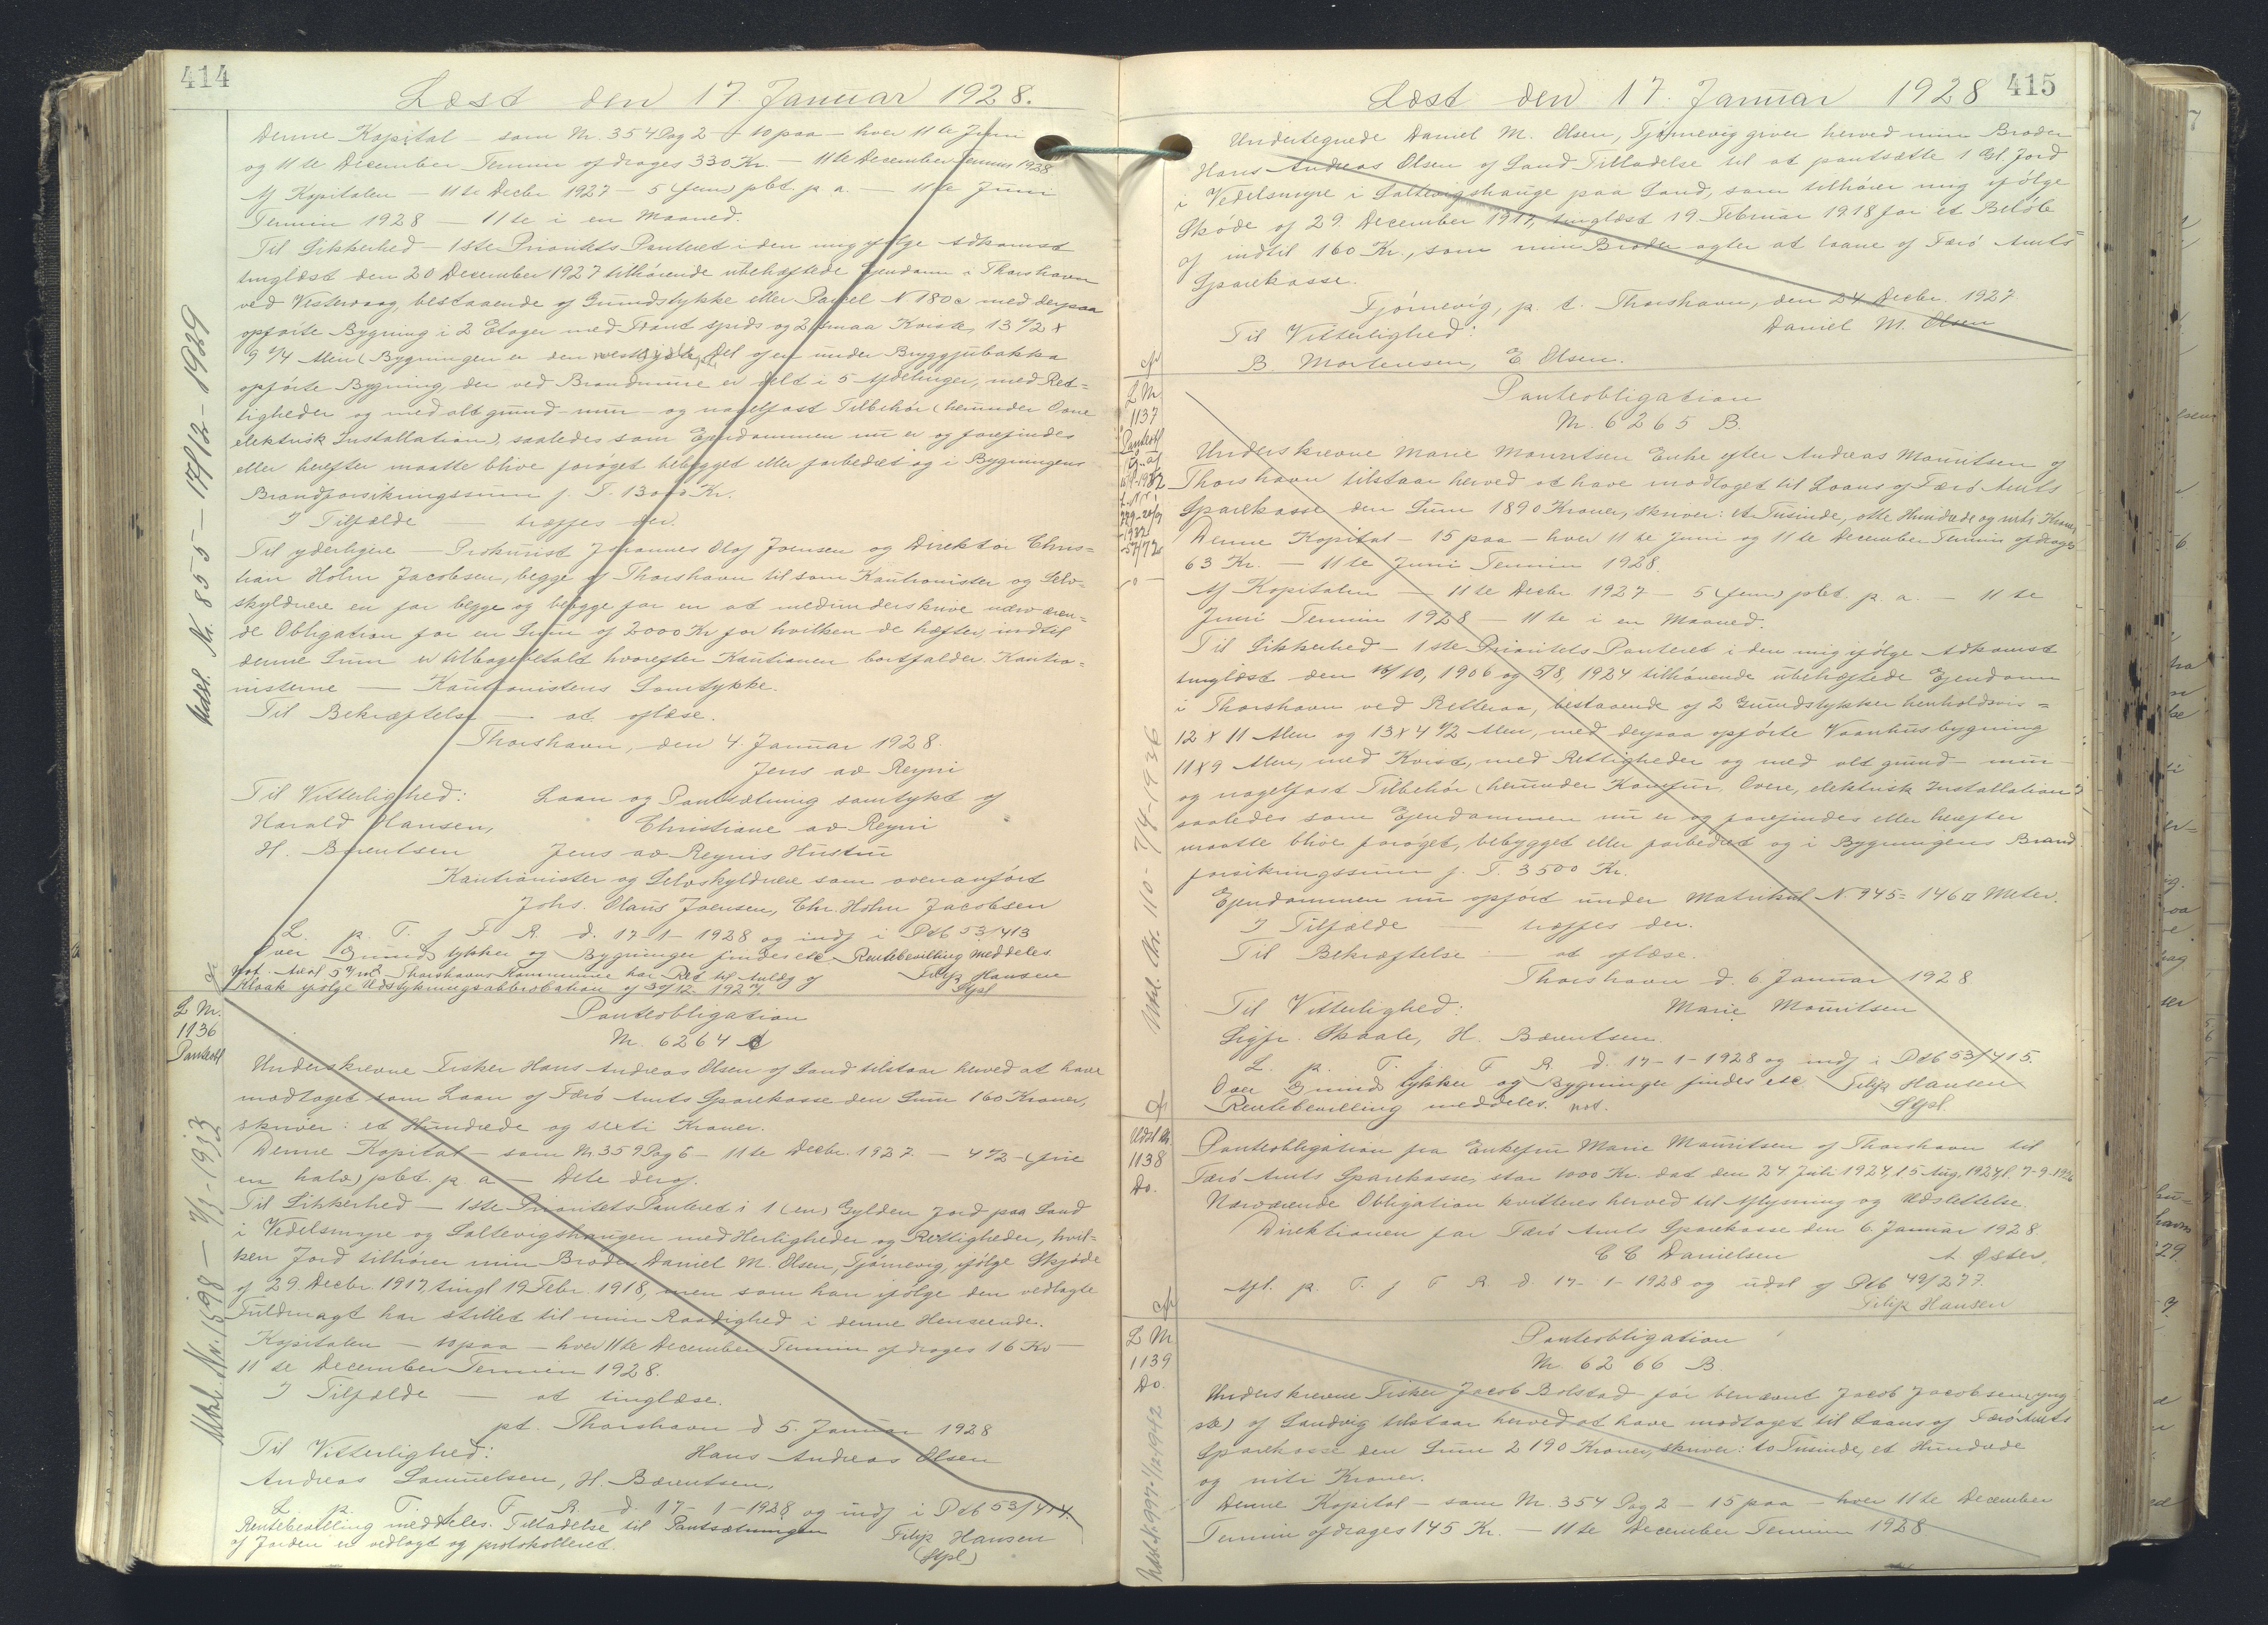 414
Læst den 17. Januar 1928.
Denne Kapital – som Nr. 354 Pag 2 – 10 paa – hver 11te Juni
og 11te December Termin afdrages 330 Kr. – 11te December Termin 1928
Af Kapitalen – 11te Decbr 1927 – 5 (fem) pCt. p. a. – 11te Juni
Termin 1928 – 11te i en Maaned.
Til Sikkerhed – 1ste Prioritets Panteret i den mig ifølge Adkomst
tinglæst den 20 December 1927 tilhørende ubehæftede Ejendom i Thorshavn
ved Vestervaag, bestaaende af Grundstykke eller Parcel N 180c med derpaa
opførte Bygning i 2 Etager med Front spids og 2 smaa Kviste, 13 1/2 x
9 1/4 Alen (Bygningen er den vestligste Del af en under Bryggjubakka
opførte Bygning, der ved Brandmure er delt i 5 Afdelinger, med Ret=
tigheder og med alt grund- mur- og nagelfast Tilbehør (herunder Ovne
elektrisk Installation), saaledes som Ejendommen nu er og forefindes
eller herefter maatte blive forøget bebygget eller forbedret og i Bygningens
Brandforsikringssum f. T. 13000 Kr.
I Tilfælde – træffes der.
Til yderligere – Prokurist Johannes Olaf Joensen og Direktør Chris=
tian Holm Jacobsen, begge af Thorshavn til som Kautionister og Selv=
skyldnere en for begge og begge for en at medunderskrive nærværen=
de Obligation for en Sum af 2000 Kr for hvilken de hæfter, indtil
denne Sum er tilbagebetalt hvorefter Kautionen bortfalder. Kautio=
nisterne – Kautionistens Samtykke.
Til Bekræftelse – at aflæse.
Thorshavn, den 4. Januar 1928.
Jens av Reyni
Til Vitterlighed: Laan og Pantsætning samtykt af
Harald Hansen, Christiane av Reyni
H. Bærentsen Jens av Reynis Hustru
Kautionister og Selvskyldnere som ovenanført
Johs. Olaus Joensen, Chr. Holm Jacobsen
L. p. T. f F R. d. 17-1-1928 og indf i Ptb 53/413
Over Grundstykker og Bygninger findes etc. Rentebevilling meddeles
not. Thorshavns Kommune har Ret til Anlæg af Filip Hansen
Kloak ifølge Udstykningsabbrobation af 30/12. 1927. Stpl
Udsl. Nr. 855 – 17/12-1929
L Nr.
1136
Panteobl
Panteobligation
Nr. 6264
Underskrevne Fisker Hans Andreas Olsen af Sand tilstaar herved at have
modtaget som Laan af Færø Amts Sparekasse den Sum 160 Kroner,
skriver: et Hundrede og sexti Kroner.
Denne Kapital – som Nr 359 Pag 6 – 11te Decbr. 1927. – 4 1/2 – (fire
en halv) pCt. p. a – Dele deraf.
Til Sikkerhed – 1ste Prioritets Panteret i 1 (en) Gylden Jord paa Sand
i Vedelsmyre og Saltevigshaugen med Herligheder og Rettigheder, hvil=
ken Jord tilhører min Broder Daniel M. Olsen, Tjørnevig, ifølge Skjøde
af 29. Decbr. 1917, tingl 19 Febr. 1918, men som han ifølge den vedlagte
Fuldmagt har stillet til min Raadighed i denne Henseende.
Kapitalen – 10 paa – hver 11te December Termin afdrages 16 Kr –
11te December Termin 1928.
I Tilfælde – at tinglæse.
pt. Thorshavn d 5. Januar 1928
Til Vitterlighed: Hans Andreas Olsen
Andreas Samuelsen, H. Bærentsen,
L. p. T. f. F. R. d. 17-1-1928 og indf i Ptb 53/414.
Rentebevilling meddeles. Tilladelse til Pantsætningen Filip Hansen
af Jorden er vedlagt og protokolleret. (Stpl)
Udsl. Nr. 1598 – 7/3-1933
415
Læst den 17. Januar 1928
Undertegnede Daniel M. Olsen, Tjørnevig giver herved min Broder
Hans Andreas Olsen af Sand Tilladelse til at pantsætte 1 Gl. Jord
i Vedelsmyre i Saltevigshauge paa Sand, som tilhører mig ifølge
Skøde af 29. December 1917, tinglæst 19. Februar 1918 for et Beløb
af indtil 160 Kr., som min Broder agter at laane af Færø Amts
Sparekasse.
Tjørnevig, p. t. Thorshavn, den 24 Decbr. 1927.
Til Vitterlighed: Daniel M. Olsen
B. Mortensen, E Olsen.
L Nr
1137
Panteobl
Panteobligation
Nr. 6265 B.
Underskrevne Marie Mouritsen Enke efter Andreas Mouritsen af
Thorshavn tilstaar herved at have modtaget til Laans af Færø Amts
Sparekasse den Sum 1890 Kroner, skriver: et Tusinde, otte Hundrede og niti Kroner
Denne Kapital – 15 paa – hver 11te Juni og 11te December Termin afdrages
63 Kr. – 11te Juni Termin 1928.
Af Kapitalen – 11te Decbr 1927 – 5 (fem) pCt. p. a. – 11te
Juni Termin 1928 – 11te i en Maaned.
Til Sikkerhed – 1ste Prioritets Panteret i den mig ifølge Adkomst
tinglæst den 16/10, 1906 og 5/8, 1924 tilhørende ubehæftede Ejendom
i Thorshavn ved Retteraa, bestaaende af 2 Grundstykker henholdsvis =
12 x 11 Alen og 13 x 4 1/2 Alen, med derpaa opførte Vaanhusbygning
11 x 9 Alen, med Kvist, med Rettigheder og med alt grund- mur-
og nagelfast Tilbehør (herunder Komfur, Ovne, elektrisk Installation)
saaledes som Ejendommen nu er og forefindes eller herefter
maatte blive forøget, bebygget eller forbedret og i Bygningens Brand
forsikringssum f. T. 3500 Kr.
Ejendommen nu opført under Matrikul N. 945 = 146 □ Meter.
I Tilfælde – træffes der.
Til Bekræftelse – at aflæse.
Thorshavn d. 6. Januar 1928
Til Vitterlighed: Marie Mouritsen
Sigfr. Skaale, H. Bærentsen.
L. p. T. f. F R. d. 17-1-1928 og indf i Ptb 53/415.
Over Grundstykker og Bygninger findes etc Filip Hansen
Rentebevilling meddeles. not. Stpl.
Udsl. Nr. 110 – 7/4-1936
Udsl Nr
1138
Do.
Panteobligation fra Enkefru Marie Mouritsen af Thorshavn til
Færø Amts Sparekasse, stor 1000 Kr. dat den 24 Juli 1924, l. 5 Aug. 1924, 7-9-1926
Nærværende Obligation kvitteres herved til Aflysning og Udslettelse.
Direktionen for Færø Amts Sparekasse den 6. Januar 1928.
C C Danielsen A Øster.
Afl. p. T. f F R. d 17-1-1928 og udsl af Ptb 49/277.
Filip Hansen
L Nr
1139
Do.
Panteobligation
Nr. 6266 B.
Underskrevne Fisker Jacob Bolstad – før benævnt Jacob Jacobsen (yng
ste) af Sandvig tilstaar herved at have modtaget til Laans af Færø Amts
Sparekasse den Sum 2190 Kroner, skriver: to Tusinde, et Hundrede
og niti Kroner.
Denne Kapital – som Nr. 354 Pag 2 – 15 paa – hver 11te December
Termin afdrages 145 Kr. – 11te December Termin 1928